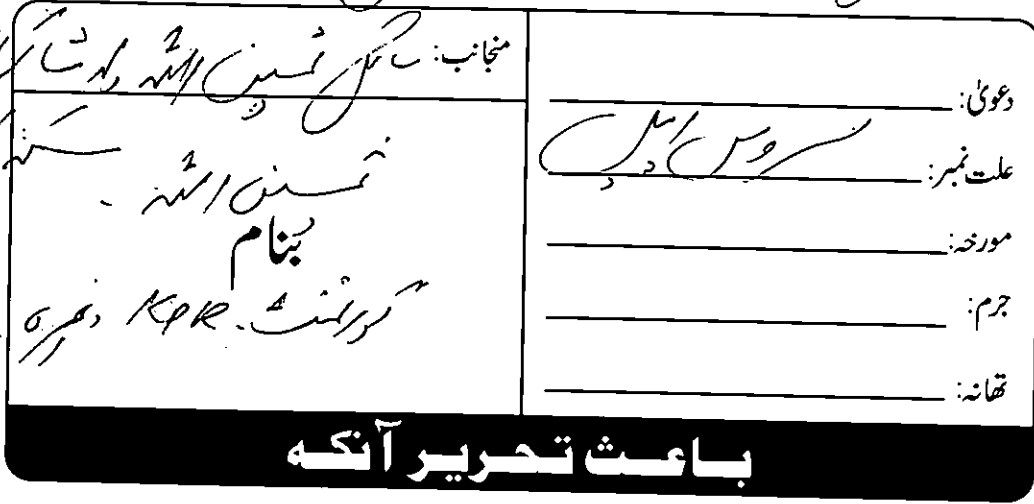 دعویٰ:
علت نمبر: سروس اپیل
مورخہ:
جرم:
تھانہ:
منجانب: سائل ثمین اللہ ولد
ثمین اللہ
بنام
گورنمنٹ KPK وغیرہ
باعث تحریر آنکہ